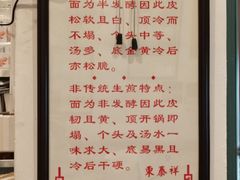 面为半发酵因此皮
松软且白、顶冷而
不塌、个头中等、
汤多、底金黄冷后
亦松脆。
非传统生煎特点：
面为非发酵因此皮
韧且黄、顶开锅即
塌、个头及汤水一
味求大、底易黑且
冷后干硬。
东泰祥